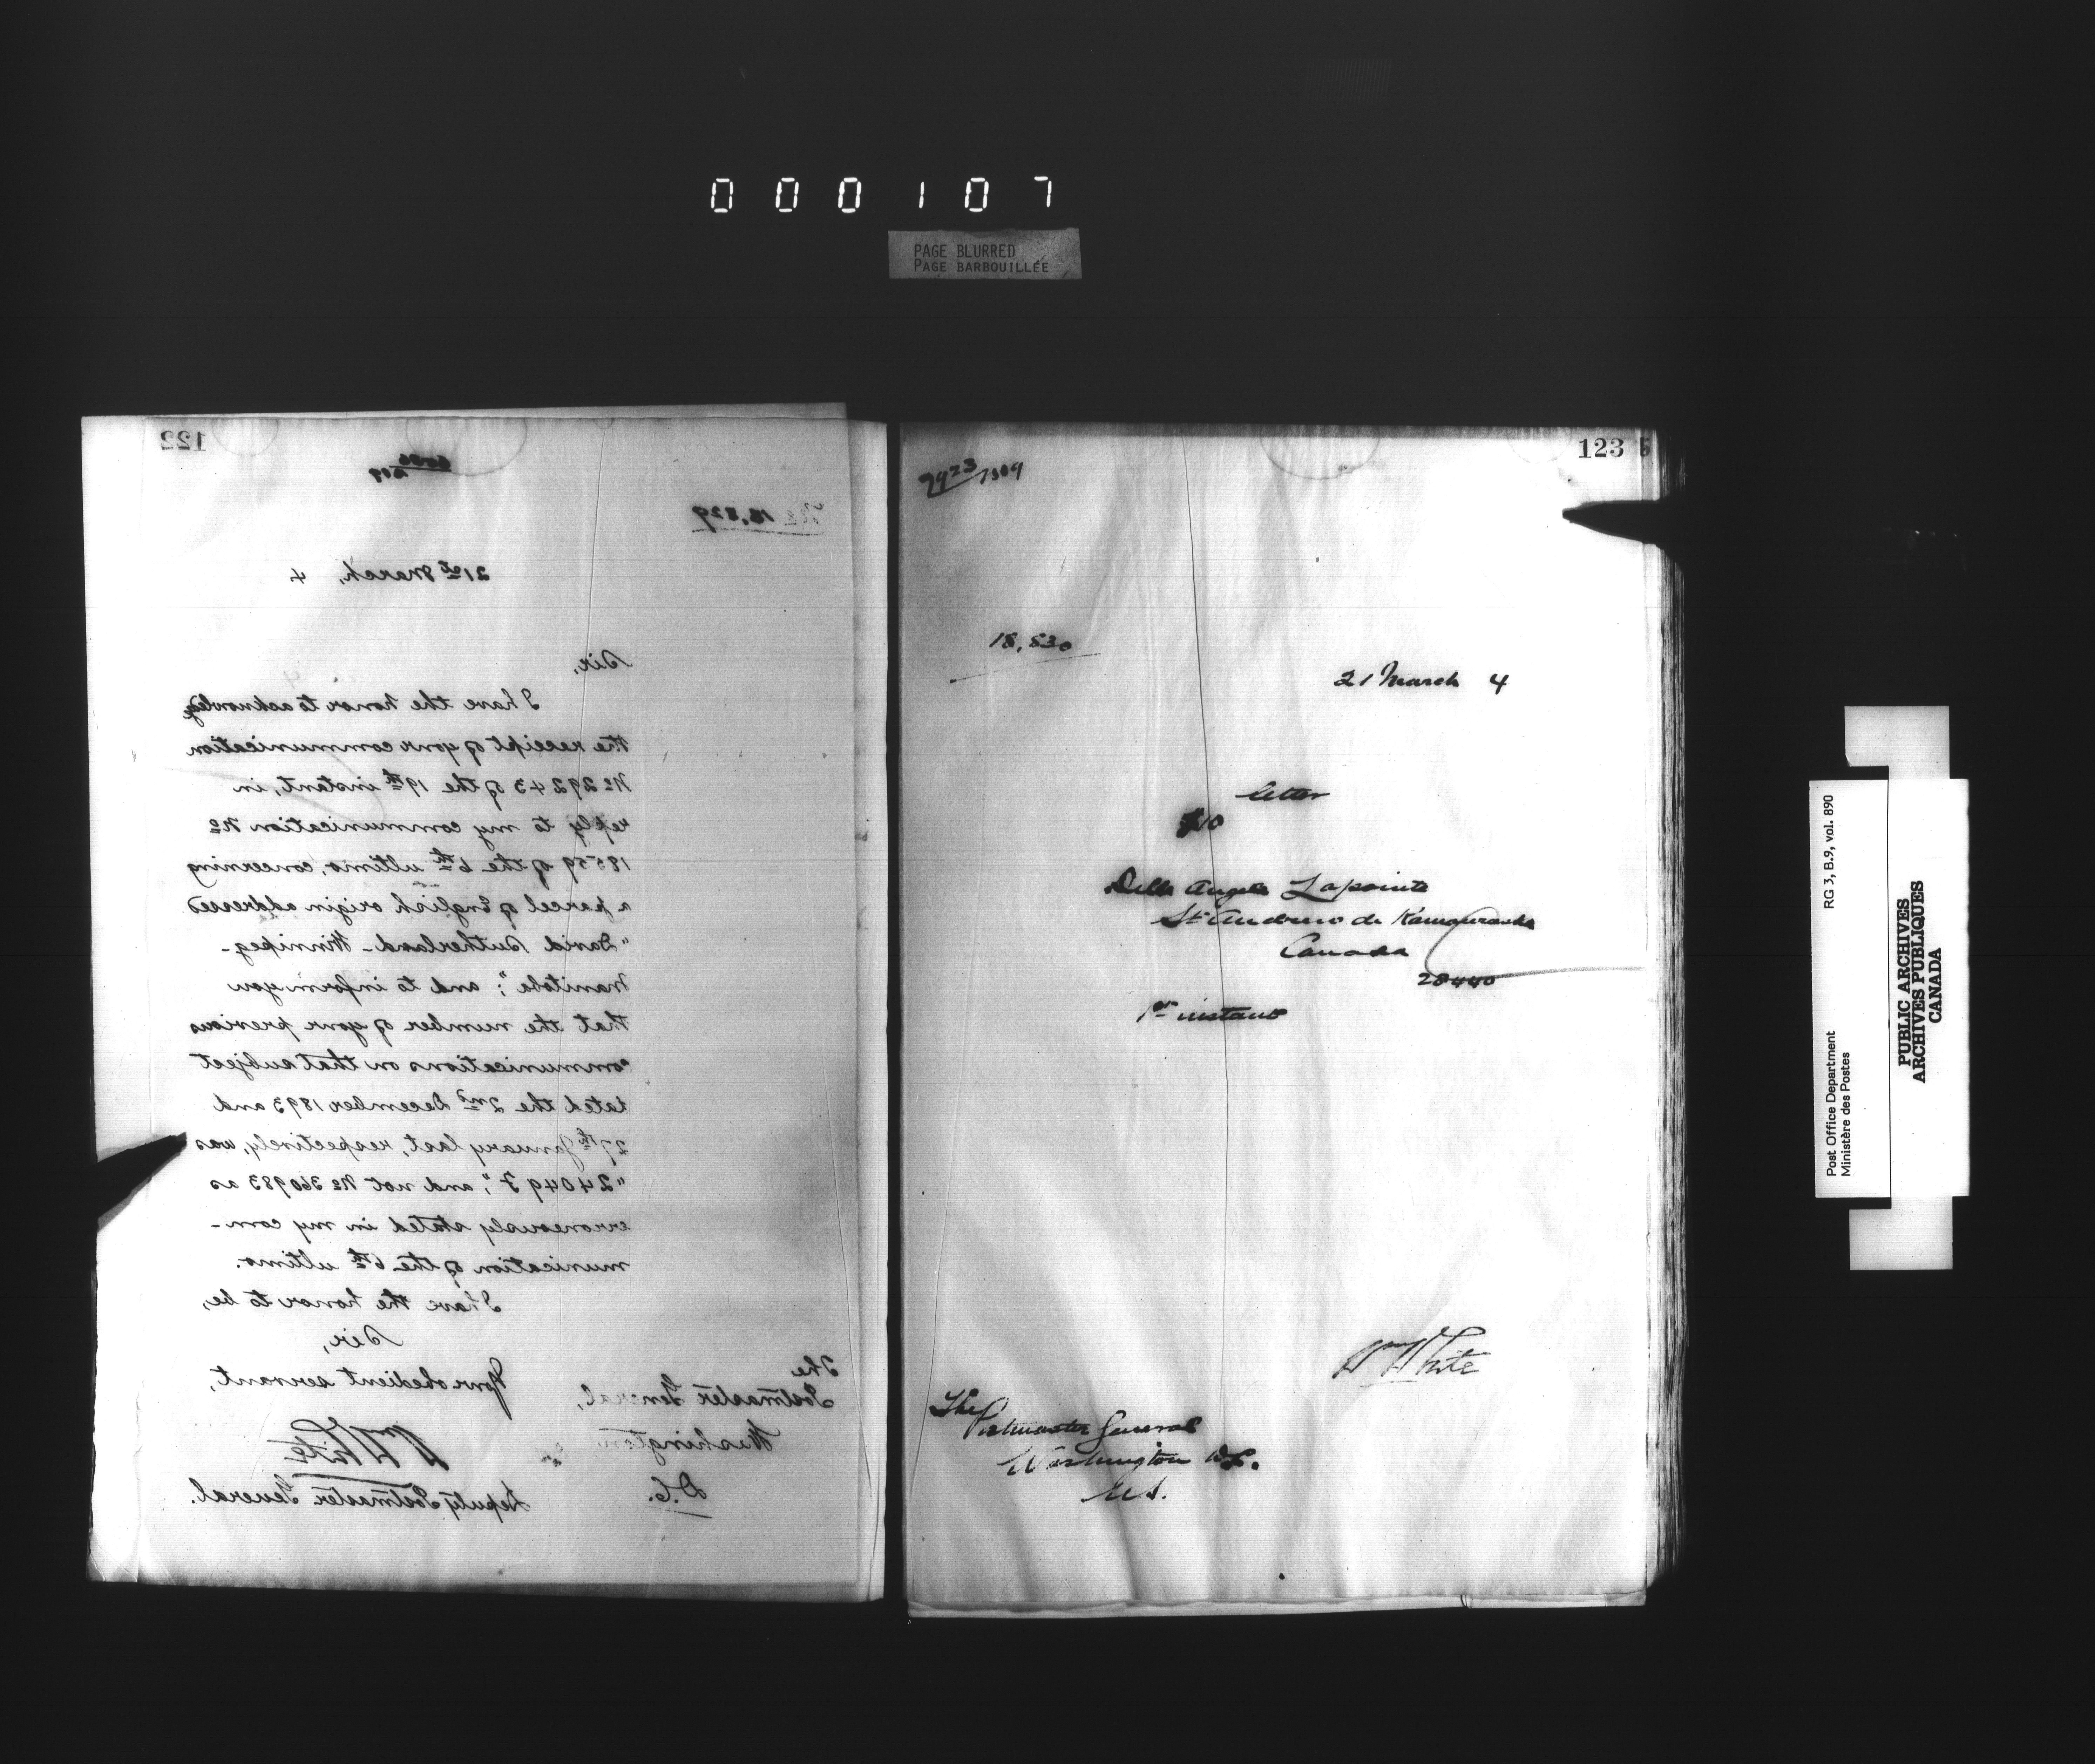 0 0 0 1 0 7
PAGE BLURRED
PAGE BARBOUILLÉE
122
No 18,829
21st March, 4
Sir,
I have the honor to acknowledge
the receipt of your communication
No 29243 of the 19th instant, in
reply to my communication No
18559 of the 6th ultimo, concerning
a parcel of English origin addressed
"David Sutherland - Winnipeg -
Manitoba"; and to inform you
that the number of your previous
communications on that subject
dated the 2nd December 1893 and
27th January last, respectively, was
"24049 F", and not No 360983 as
erroneously stated in my com-
munication of the 6th ultimo.
I have the honor to be,
Sir,
Your obedient servant,
Wm White
Deputy Postmaster General.
The
Postmaster General,
Washington
D.C.
123
7923/1304
18,830
21 March 4
letter
$10
Delle Angele Lapointe
St Andrew de Kamouraska
Canada
28440
1st instant
Wm White
The
Postmaster General
Washington D.C.
U.S.
Post Office Department
Ministère des Postes
RG 3, B.9, vol. 890
PUBLIC ARCHIVES
ARCHIVES PUBLIQUES
CANADA